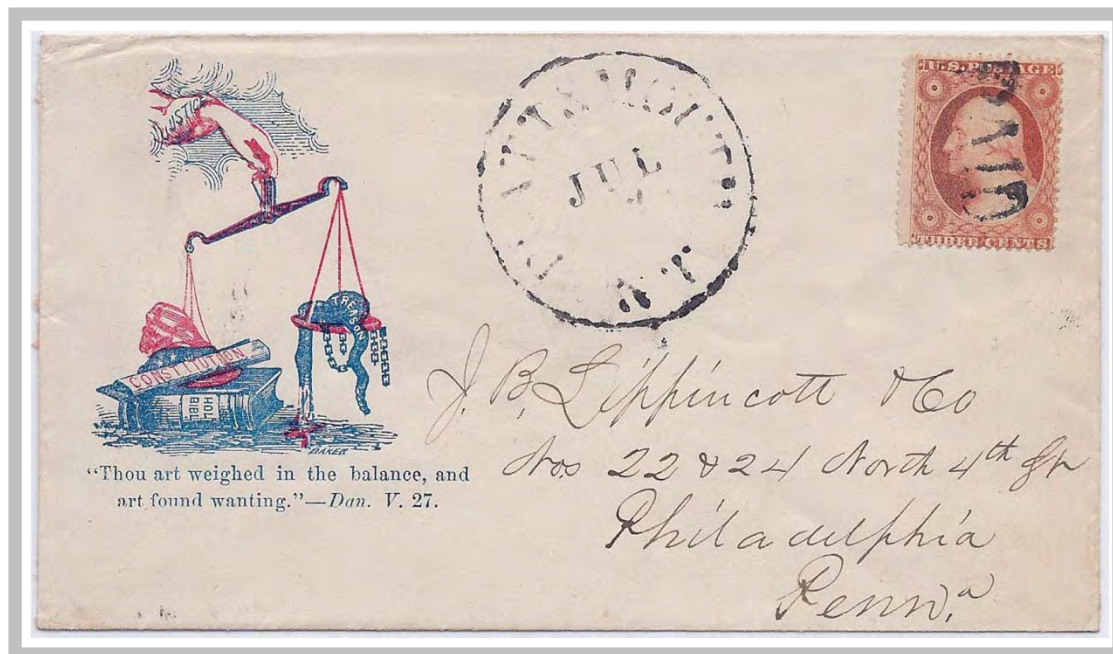 JUSTICE
TREASON
CONSTITUTION
HOLY
BIBLE
BAKER
"Thou art weighed in the balance, and
art found wanting."—Dan. V. 27.
JUL
N.J.
U.S. POSTAGE
PAID
THREE CENTS
J. B. Lippincott & Co
Nos 22 & 24 North 4th St
Philadelphia
Penna